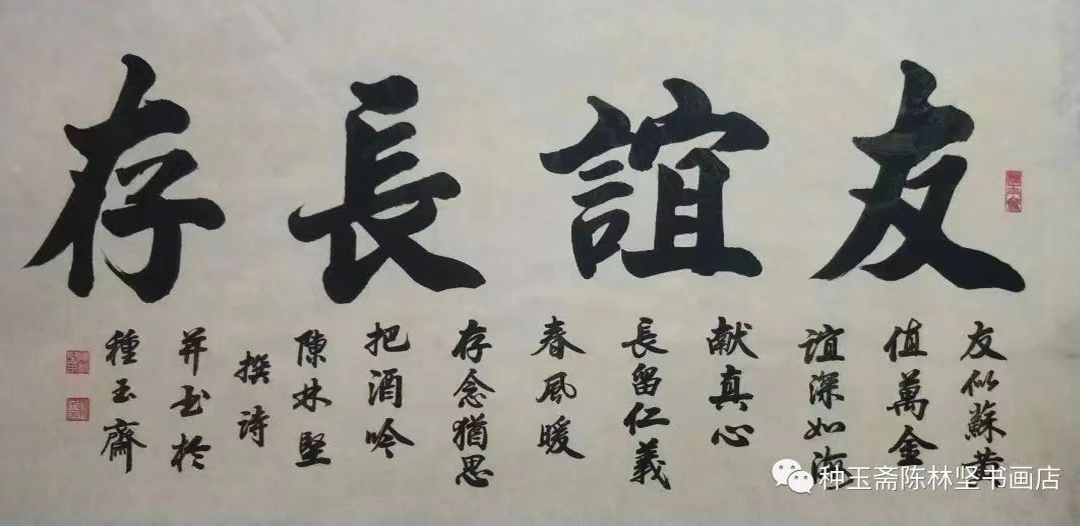 友誼長存
友似蘇黄
值萬金
誼深如海
献真心
長留仁義
春風暖
存念猶思
把酒吟
陳林堅
撰詩
并书於
種玉齋
种玉斋陈林坚书画店